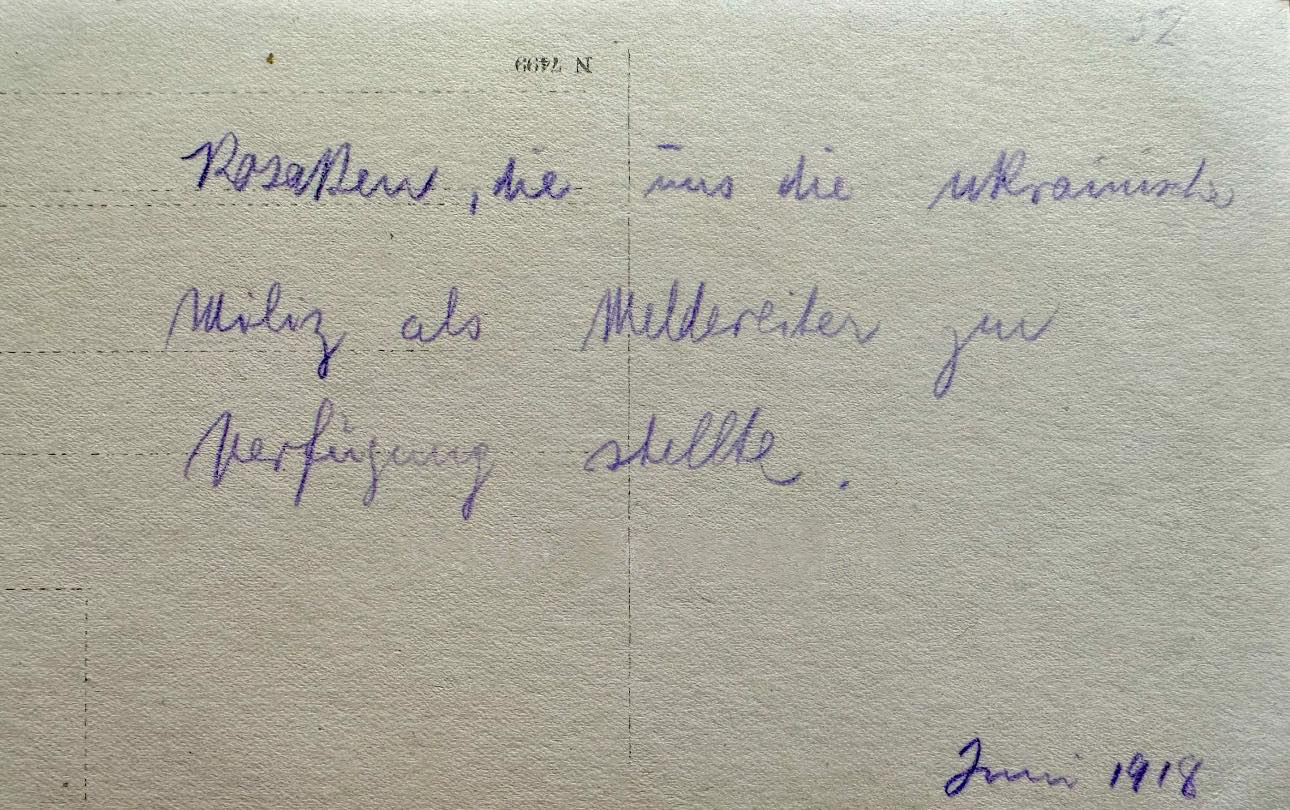 52
N 7499
Kosaken, die uns die ukrainische
Miliz als Meldereiter zur
Verfügung stellte.
Juni 1918